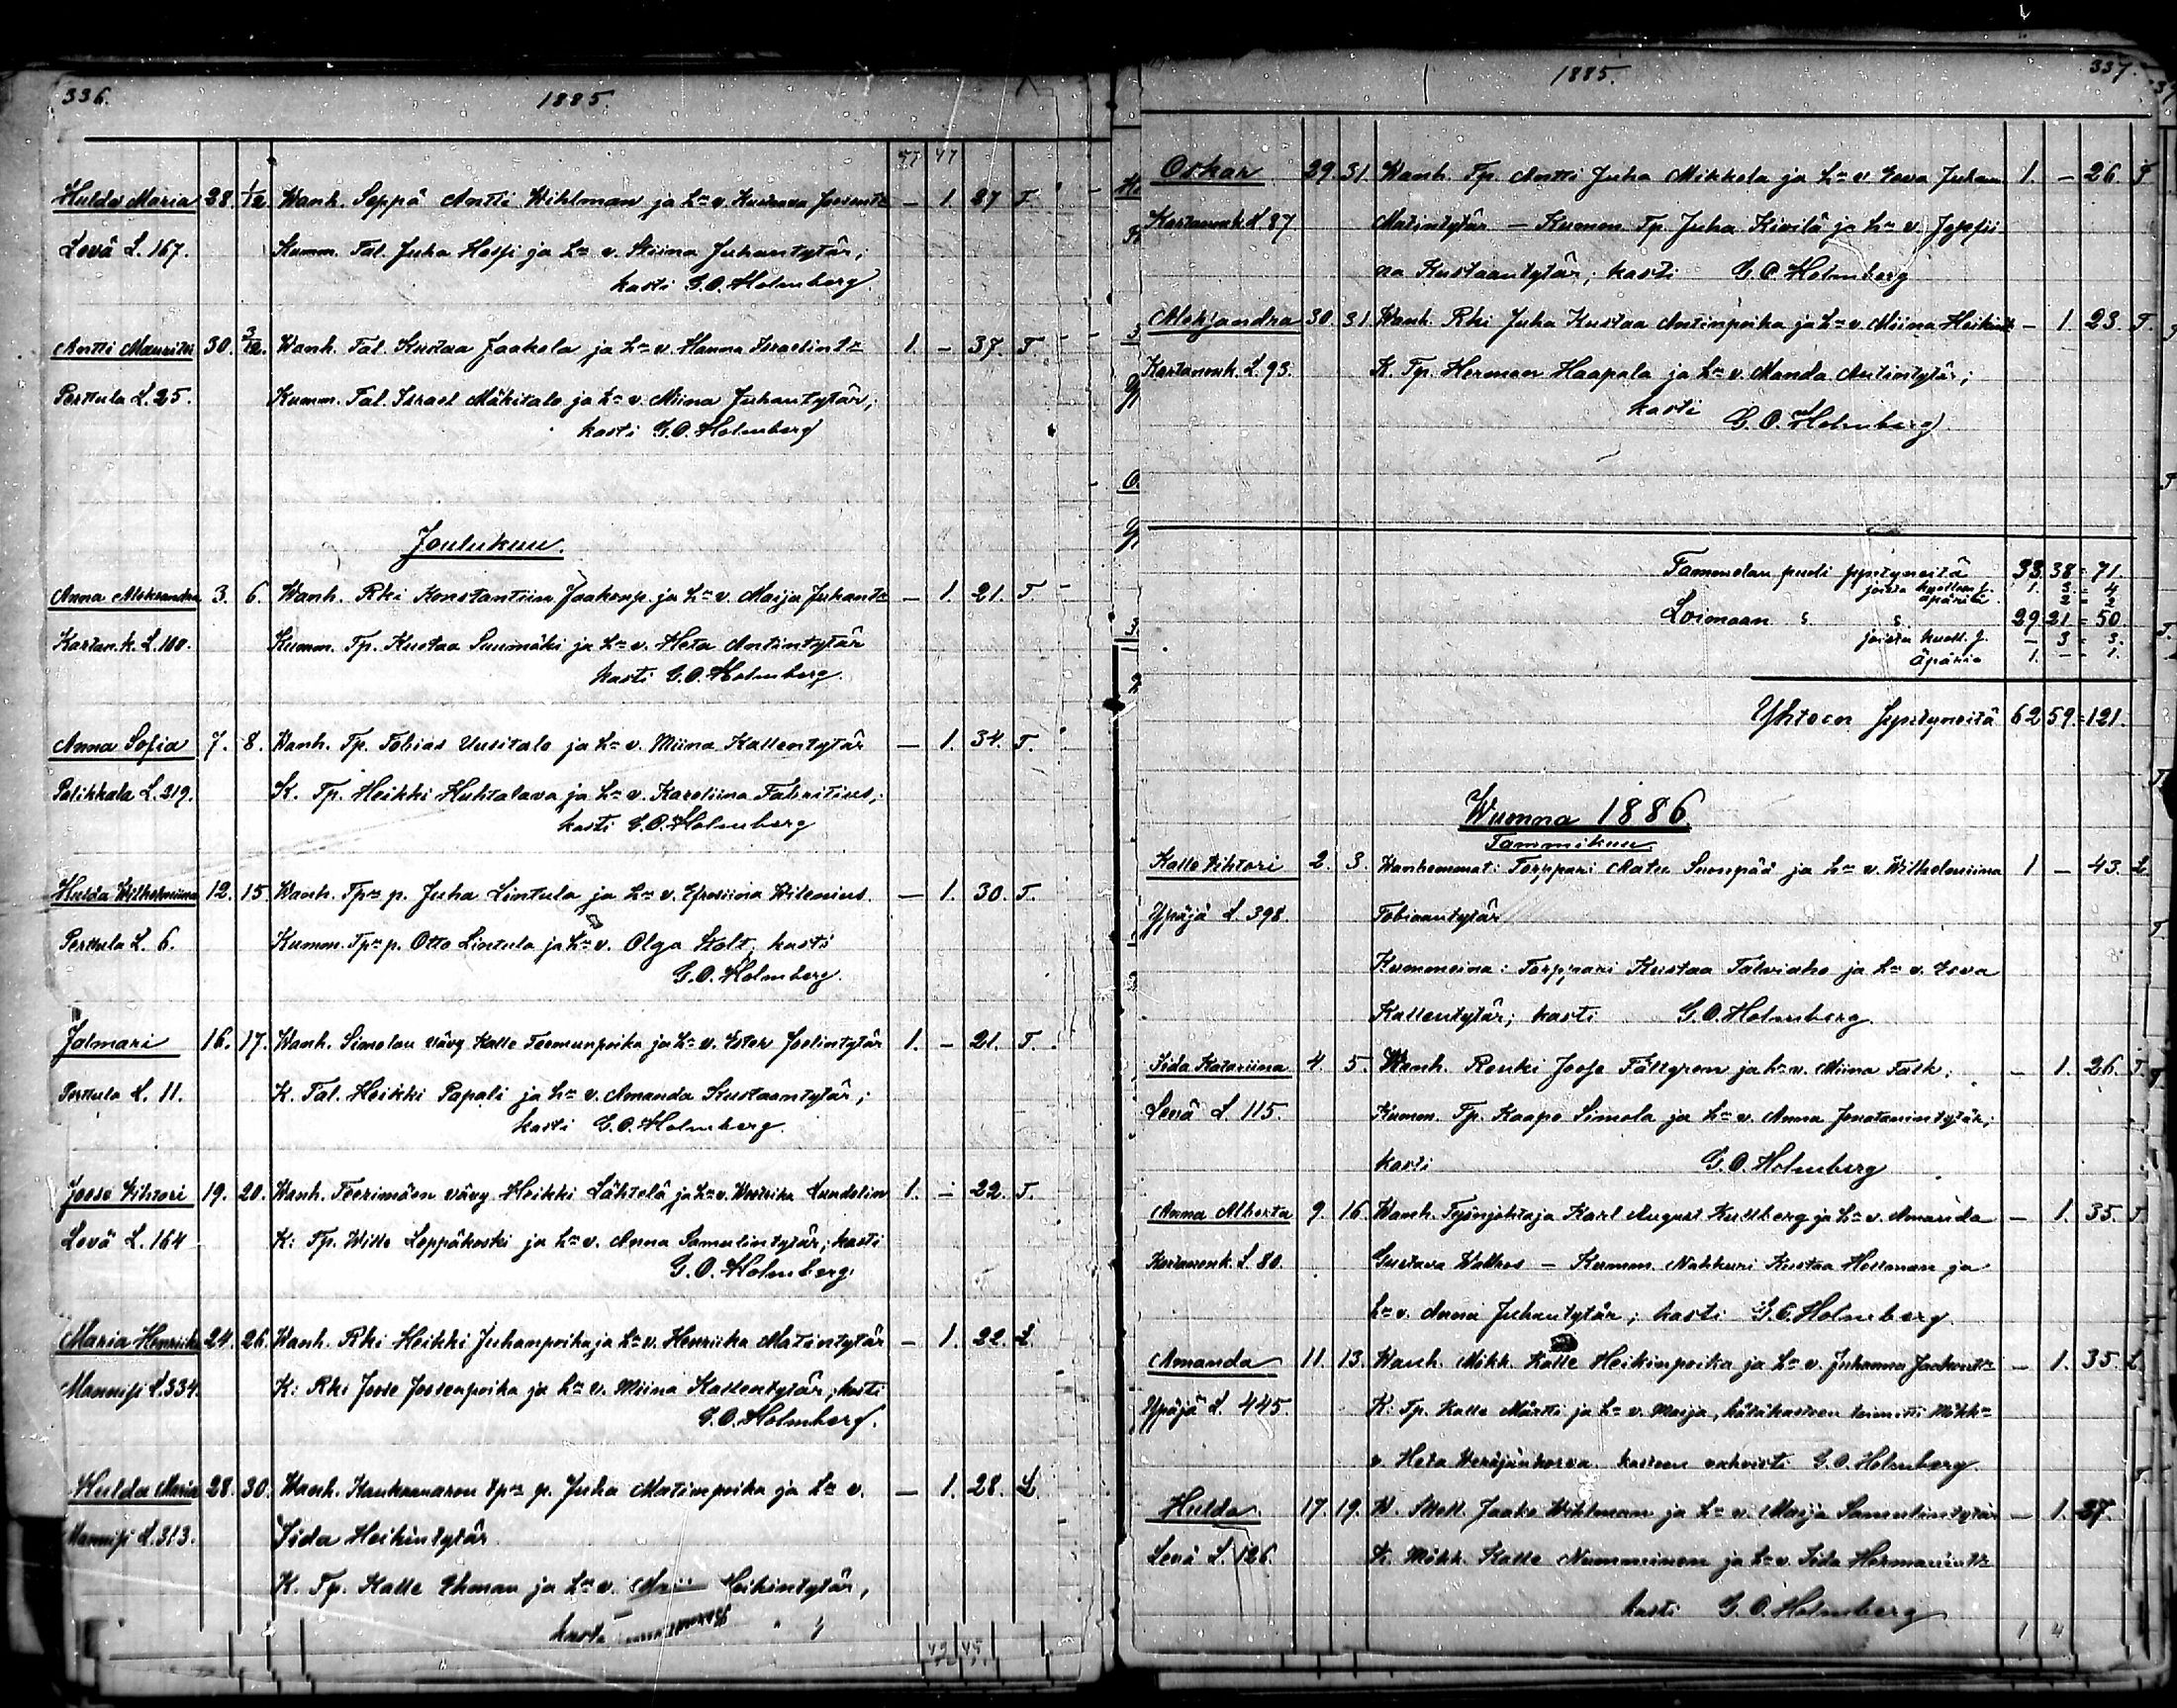 336.
1885.
Hulda Maria 28. 1/12. Wanh. Seppä Antti Wihlman ja h:n v. Kustava Joosent:r — 1. 27 T.
Levä L. 167. Kumm. Tal. Juha Hossi ja h:n v. Stiina Juhantytär;
kasti G.O. Holmberg.
Antti Mauritsi 30. 3/12. Wanh. Tal. Kustaa Jaakola ja h:n v. Hanna Israelint:r 1. — 37. T.
Perttula L. 25. Kumm. Tal. Israel Mäkitalo ja h:n v. Miina Juhantytär;
kasti G.O. Holmberg
Joulukuu.
Anna Aleksandra 3. 6. Wanh. Rki Konstantiin Jaakonp. ja h:n v. Maija Juhant:r — 1. 21. T.
Kartan.k. L. 100. Kumm. Tp. Kustaa Suumäki ja h:n v. Heta Antintytär
kasti G.O. Holmberg.
Anna Sofia 7. 8. Wanh. Tp. Tobias Uusitalo ja h:n v. Miina Kallentytär — 1. 34. T.
Palikkala L. 219. K. Tp. Heikki Huhtalava ja h:n v. Karoliina Fabritius;
kasti G.O. Holmberg
Hulda Wilhelmiina 12. 15 Wanh. Tp:n p. Juha Lintula ja h:n v. Efrosiina Wilenius. — 1. 30. T.
Perttula L. 6. Kumm. Tp:n p. Otto Lintula ja h:n v. Olga Stolt; kasti
G.O. Holmberg.
Jalmari 16. 17. Wanh. Simolan vävy Kalle Teemunpoika ja h:n v. Ester Joelintytär 1. — 21. T.
Perttula L. 11. K. Tal. Heikki Papali ja h:n v. Amanda Kustaantytär;
kasti G.O. Holmberg.
Joose Vihtori 19. 20. Wanh. Teerimäen vävy Heikki Lähtelä ja h:n v. Lundelin 1. — 22. T.
Levä L. 164 K: Tp. Wille Leppäkoski ja h:n v. Anna Samulintytär; kasti
G.O. Holmberg.
Maria Henriika 24. 26. Wanh. Rki Heikki Juhanpoika ja h:n v. Henriika Matintytär — 1. 22. L.
Mannisi L. 334. K: Rki Joose Joosenpoika ja h:n v. Miina Kallentytär; kasti
G.O. Holmberg.
Hulda Maria 28. 30. Wanh. Kankaanaron tp:n p. Juha Matinpoika ja h:n v. — 1. 28. L.
Mannisi L. 313. Iida Heikintytär
K. Tp. Kalle Ekman ja h:n v. Heikintytär,
kasti
1885.
337.
Oskar 29. 31. Wanh. Tp. Antti Juha Mikkola ja h:n v. Eeva Juhan. 1. — 26. T
Kartanonk. L 87 Matintytär — Kumm. Tp. Juha Kivilä ja h:n v. Josefii
na Kustaantytär; kasti G.O. Holmberg
Aleksandra 30. 31. Wanh. Rki Juha Kustaa Antinpoika ja h:n v. Miina Heikint — 1. 23. T.
Kartanonk. L. 93. K. Tp. Herman Haapala ja h:n v. Manda Antintytär;
kasti G.O. Holmberg
Tammelan puoli syntyneitä 33. 38 = 71.
joista kuollena s. 1. 3. = 4
äpäriä 2 = 2
Loimaan " " 29 21 = 50.
joista kuoll. s. — 3 = 3.
äpäriä 1. — = 1.
Yhteen syntyneitä 62 59. = 121.
Wuonna 1886.
Tammikuu
Kalle Vihtori 2. 3. Wanhemmat: Torppari Matu Suonpää ja h:n v. Wilhelmiina 1 — 43. L
Ypäjä L. 398. Tobiaantytär
Kummeina: Torppari Kustaa Talviaho ja h:n v. Eeva
Kallentytär; kasti G.O. Holmberg.
Iida Katariina 4. 5. Wanh. Renki Joose Fältgren ja h:n v. Miina Falk; — 1. 26. T.
Levä L. 115. Kumm. Tp. Kaapo Simola ja h:n v. Anna Jonatanintytär;
kasti G.O. Holmberg
Anna Alberta 9. 16. Wanh. Työnjohtaja Karl August Kullberg ja h:n v. Amanda — 1. 35. T
Kartanonk. L. 80. Gustava Wallros — Kumm. Nahkuri Kustaa Hellman ja
h:n v. Anna Juhantytär; kasti G.O. Holmberg.
Amanda 11. 13. Wanh. Mökk. Kalle Heikinpoika ja h:n v. Juhanna Jaakont:r — 1. 35. L
Ypäjä L. 445. K: Tp. Kalle Märtti ja h:n v. Maija, hätäkasteen toimitti Mökk:n
v. Heta kasteen vahvisti G.O. Holmberg.
Hulda. 17. 19. W. Mökk. Jaako Wihlman ja h:n v. Maija Samulintytär — 1. 27.
Levä L. 126. K. Mökk. Kalle Nummminen ja h:n v. Iida Hermanint:r
kasti G.O. Holmberg
1 4